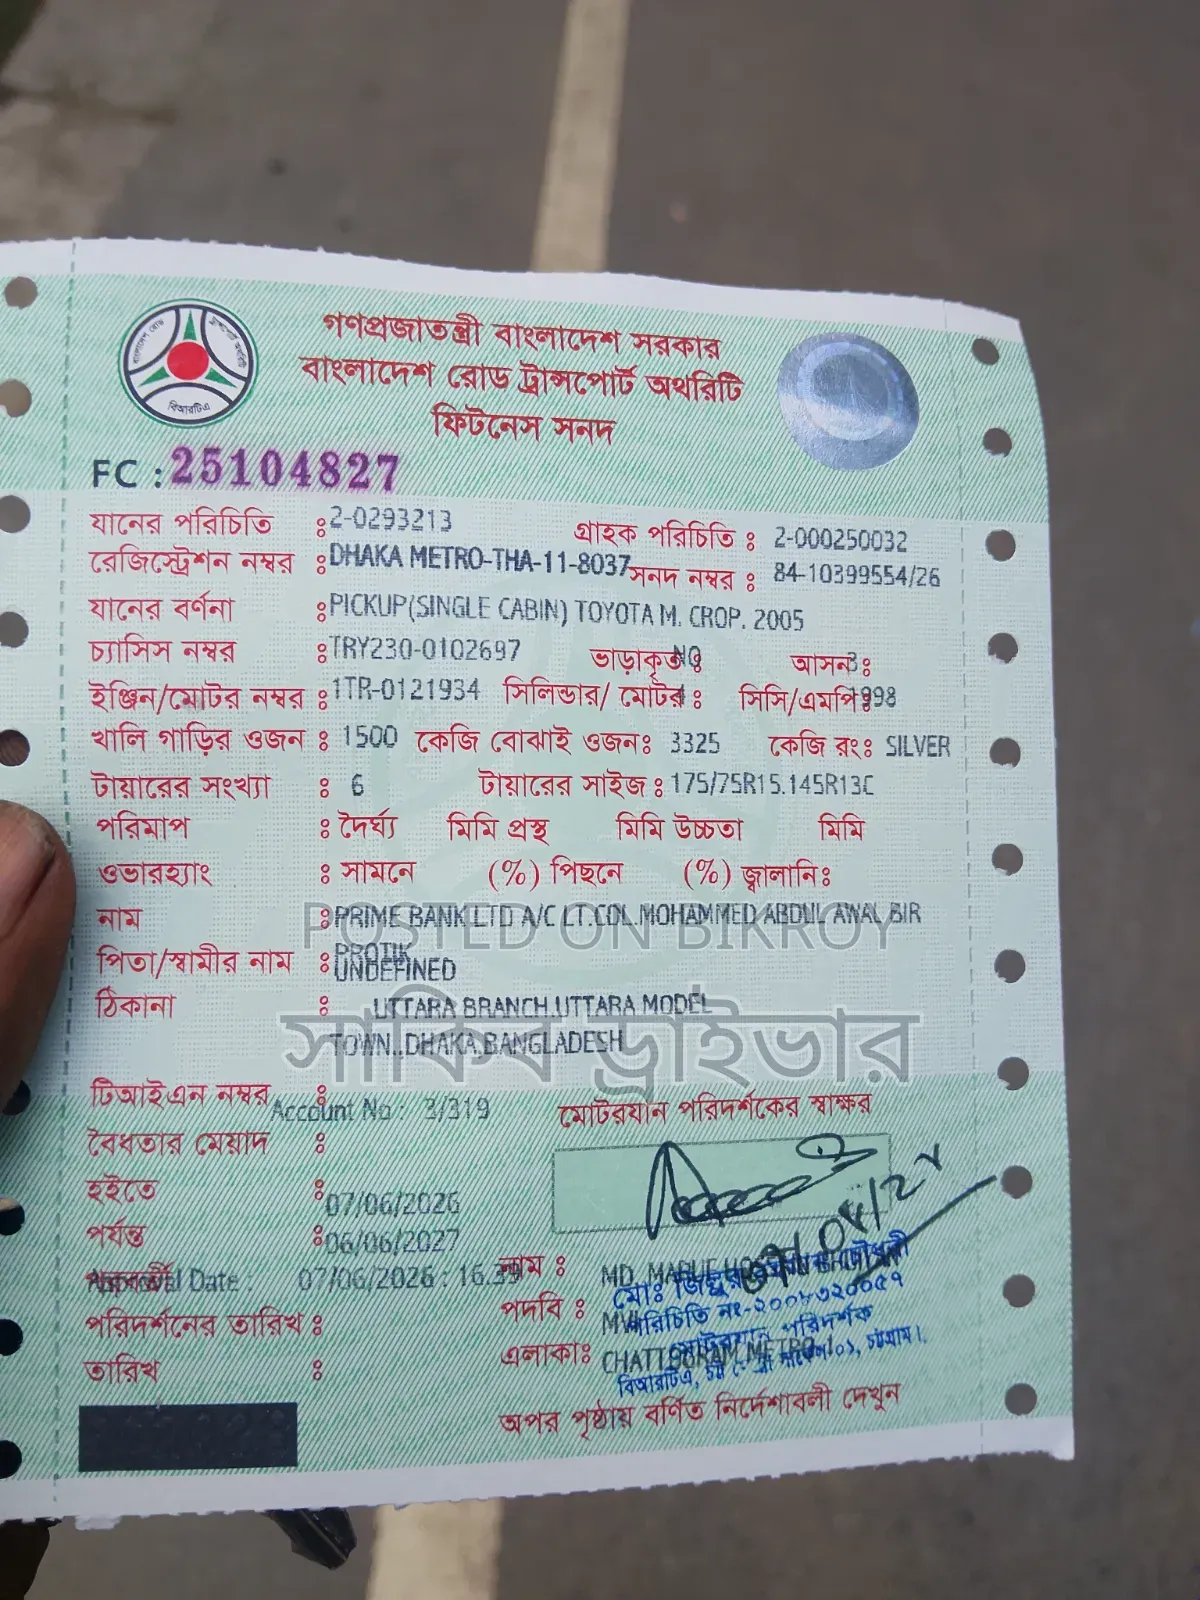 গণপ্রজাতন্ত্রী বাংলাদেশ সরকার
বাংলাদেশ রোড ট্রান্সপোর্ট অথরিটি
ফিটনেস সনদ
বিআরটিএ
FC : 25104827
যানের পরিচিতি : 2-0293213 গ্রাহক পরিচিতি : 2-000250032
রেজিস্ট্রেশন নম্বর : DHAKA METRO-THA-11-8037 সনদ নম্বর : 84-10399554/26
যানের বর্ণনা : PICKUP(SINGLE CABIN) TOYOTA M. CROP. 2005
চ্যাসিস নম্বর : TRY230-0102697 ভাড়াকৃত : NO আসন : 3
ইঞ্জিন/মোটর নম্বর : 1TR-0121934 সিলিন্ডার/ মোটর : 4 সিসি/এমপি : 1998
খালি গাড়ির ওজন : 1500 কেজি বোঝাই ওজন : 3325 কেজি রং : SILVER
টায়ারের সংখ্যা : 6 টায়ারের সাইজ : 175/75R15.145R13C
পরিমাপ : দৈর্ঘ্য মিমি প্রস্থ মিমি উচ্চতা মিমি
ওভারহ্যাং : সামনে (%) পিছনে (%) জ্বালানি :
নাম : PRIME BANK LTD A/C LT.COL MOHAMMED ABDUL AWAL BIR
PROTIK
POSTED ON BIKROY
পিতা/স্বামীর নাম : UNDEFINED
ঠিকানা : UTTARA BRANCH.UTTARA MODEL
TOWN..DHAKA.BANGLADESH
সাকিব ড্রাইভার
টিআইএন নম্বর :
Account No : 3/319 মোটরযান পরিদর্শকের স্বাক্ষর
বৈধতার মেয়াদ :
হইতে : 07/06/2026
পর্যন্ত : 06/06/2027
Approval Date : 07/06/2026 : 16.39 নাম : MD. MARUF HOSSAIN
পরিদর্শনের তারিখ : পদবি : MVI
মোঃ জিল্লুর চৌধুরী
পরিচিতি নং-২০০৮৩২০০৫৭
মোটরযান পরিদর্শক
তারিখ : এলাকা : CHATTOGRAM METRO-1
বিআরটিএ, চট্টগ্রাম।
অপর পৃষ্ঠায় বর্ণিত নির্দেশাবলী দেখুন